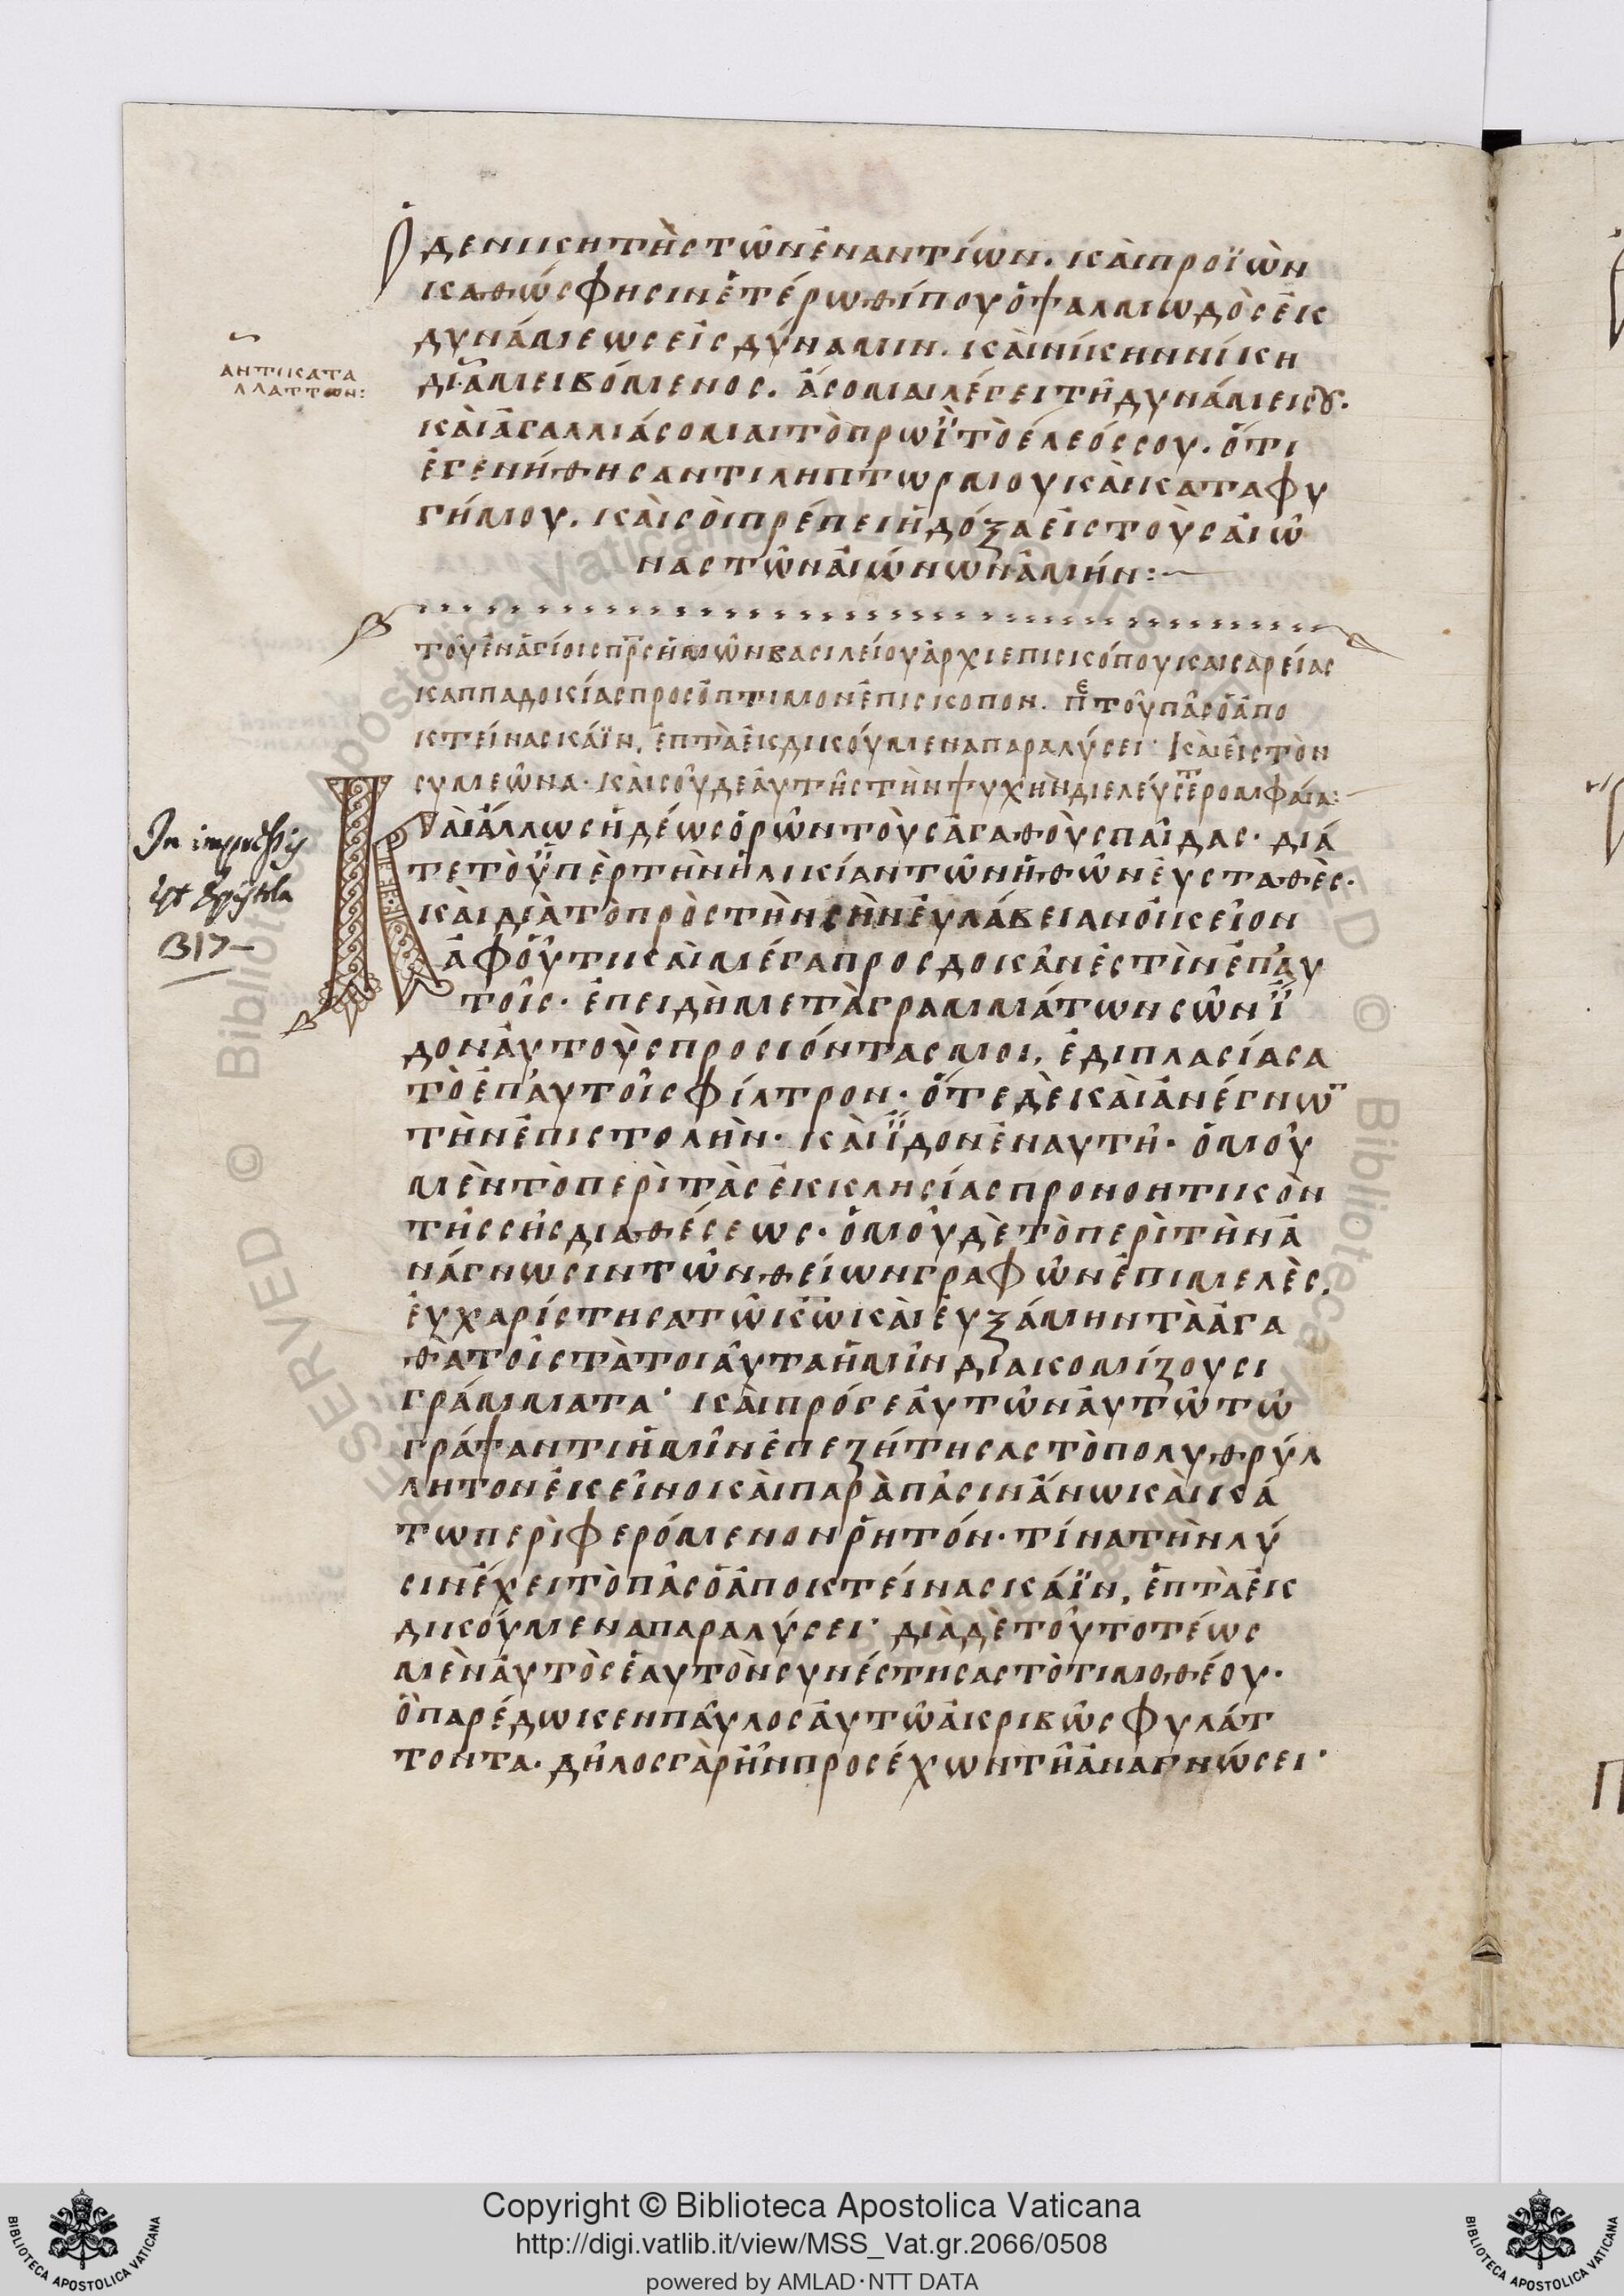 ὁ δὲ νικητὴς τῶν ἐναντίων. καὶ προϊὼν
καθώς φησιν ἑτέρωθί που ὁ ψαλμωδὸς ἐκ
δυνάμεως εἰς δύναμιν. καὶ νίκην νίκη
διαμειβόμενος. ἄσομαι λέγει τῆ δυνάμει σου.
ἀντικατα
λλάττων:
καὶ ἀγαλλιάσομαι τὸ πρωῒ τὸ ἔλεός σου. ὅτι
ἐγενήθης ἀντιλήπτωρ μου καὶ καταφυ
γή μου. καὶ σοὶ πρέπει ἡ δόξα εἰς τοὺς αἰῶ
νας τῶν αἰώνων ἀμήν:
τοῦ ἐν ἁγίοις πρς ἡμῶν βασιλείου ἀρχιεπισκόπου καισαρείας
καππαδοκίας προς ὄπτιμον ἐπίσκοπον. πε τοῦ πᾶς ὁ ἀπο
κτείνας κάϊν, ἑπτὰ ἐκδικούμενα παραλύσει· καὶ εἰς τὸν
συμεῶνα· καὶ σοῦ δε αὐτῆς τὴν ψυχὴν διελεύσετ ρομφαία:
Καὶ ἄλλως ἡδέως ὁρῶν τοὺς ἀγαθοὺς παῖδας· διά
In impressis
est Epistola
317
τε τὸ ὑπὲρ τὴν ἡλικίαν τῶν ἠθῶν εὐσταθές·
καὶ διὰ τὸ πρὸς τὴν σὴν εὐλάβειαν οἰκεῖον
ἀφ οὗ τι καὶ μέγα προσδοκᾶν ἐστὶν ἐπ αυ
τοῖς· ἐπειδὴ μετὰ γραμμάτων σῶν ἴ
δον αὐτοὺς προσιόντας μοι, ἐδιπλασίασα
τὸ ἐπ αυτοῖς φίλτρον· ὅτε δὲ καὶ ἀνέγνω
τὴν ἐπιστολὴν· καὶ ἴδον ἐν αυτῆ· ὁμοῦ
μὲν τὸ περὶ τὰς ἐκκλησίας προνοητικὸν
τῆς σῆς διαθέσεως· ὁμοῦ δὲ τὸ περὶ τὴν ἀ
νάγνωσιν τῶν θείων γραφῶν ἐπιμελὲς,
εὐχαρίστησα τῶ κω καὶ εὐξάμην τὰ ἀγα
θὰ τοῖς τὰ τοιαῦτα ἡμῖν διακομίζουσι
γράμματα· καὶ πρό γε αὐτῶν αὐτῶ τῶ
γράψαντι ἡμῖν ἐπεζήτησας τὸ πολυθρύλ
λητον ἐκεῖνο καὶ παρὰ πᾶσιν ἄνω καὶ κά
τω περιφερόμενον ῥητόν· τίνα τὴν λύ
σιν ἔχει τὸ πᾶς ὁ ἀποκτείνας κάϊν, ἑπτὰ ἐκ
δικούμενα παραλύσει· διὰ δὲ τοῦτο τέως
μὲν αὐτὸς ἑαυτὸν συνέστησας τὸ τιμοθέου·
ὃ παρέδωκεν παῦλος αὐτῶ ἀκριβῶς φυλάτ
τοντα· δῆλος γὰρ ἦν προσέχων τῆ ἀναγνώσει·
Copyright © Biblioteca Apostolica Vaticana
http://digi.vatlib.it/view/MSS_Vat.gr.2066/0508
powered by AMLAD·NTT DATA